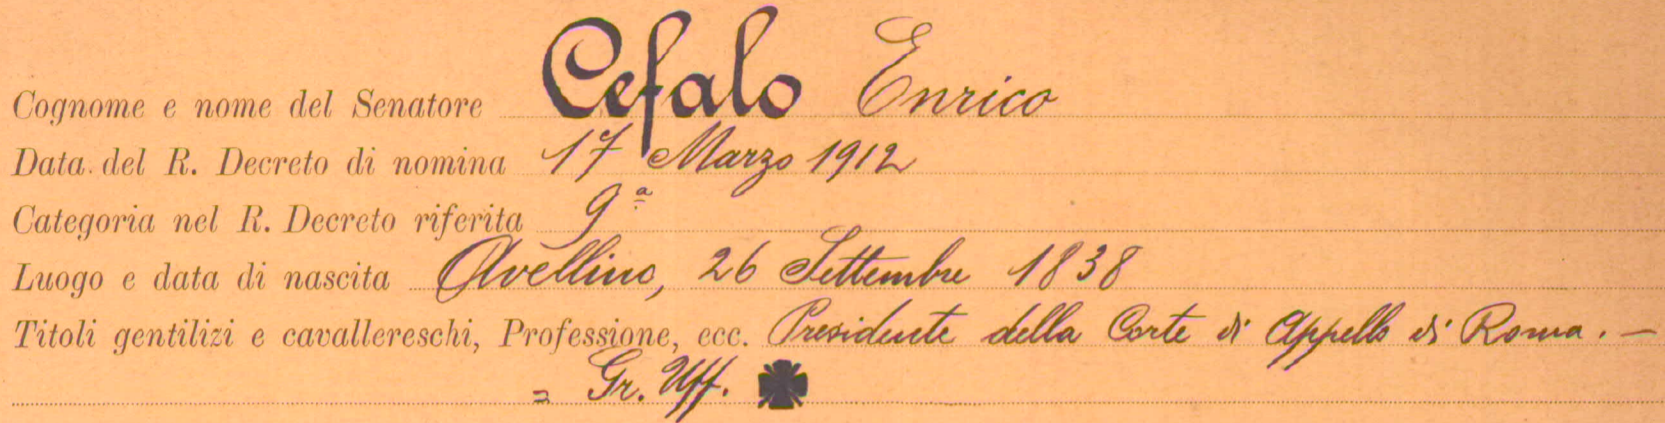 Cognome e nome del Senatore Cefalo Enrico
Data del R. Decreto di nomina 17 Marzo 1912
Categoria nel R. Decreto riferita 9ª
Luogo e data di nascita Avellino, 26 Settembre 1838
Titoli gentilizi e cavallereschi, Professione, ecc. Presidente della Corte di Appello di Roma. —
= Gr. Uff. ✠